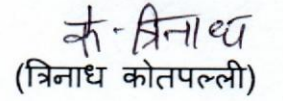 के - त्रिनाध
(त्रिनाध कोतपल्ली)